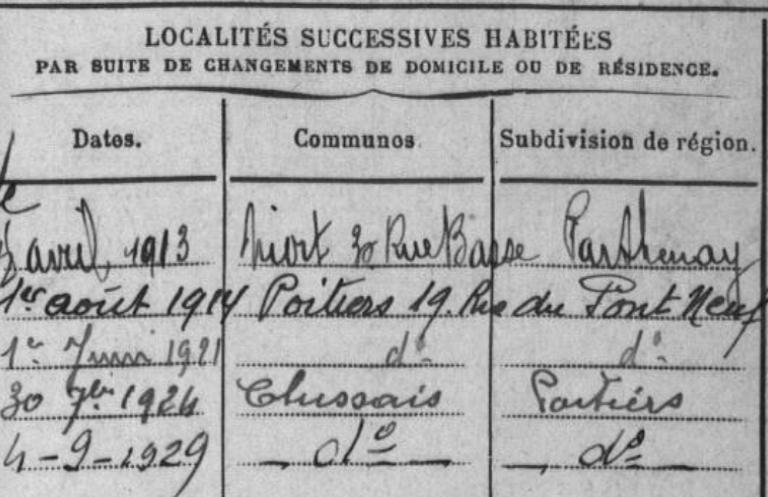 LOCALITÉS SUCCESSIVES HABITÉES
PAR SUITE DE CHANGEMENTS DE DOMICILE OU DE RÉSIDENCE.
Dates. Communes. Subdivision de région.
avril 1913 Niort 30 Rue Basse Parthenay
1er août 1914 Poitiers 19. Rue du Pont Neuf
1er Juin 1921 do do
30 7bre 1924 Clussais Poitiers
4-9-1929 do do